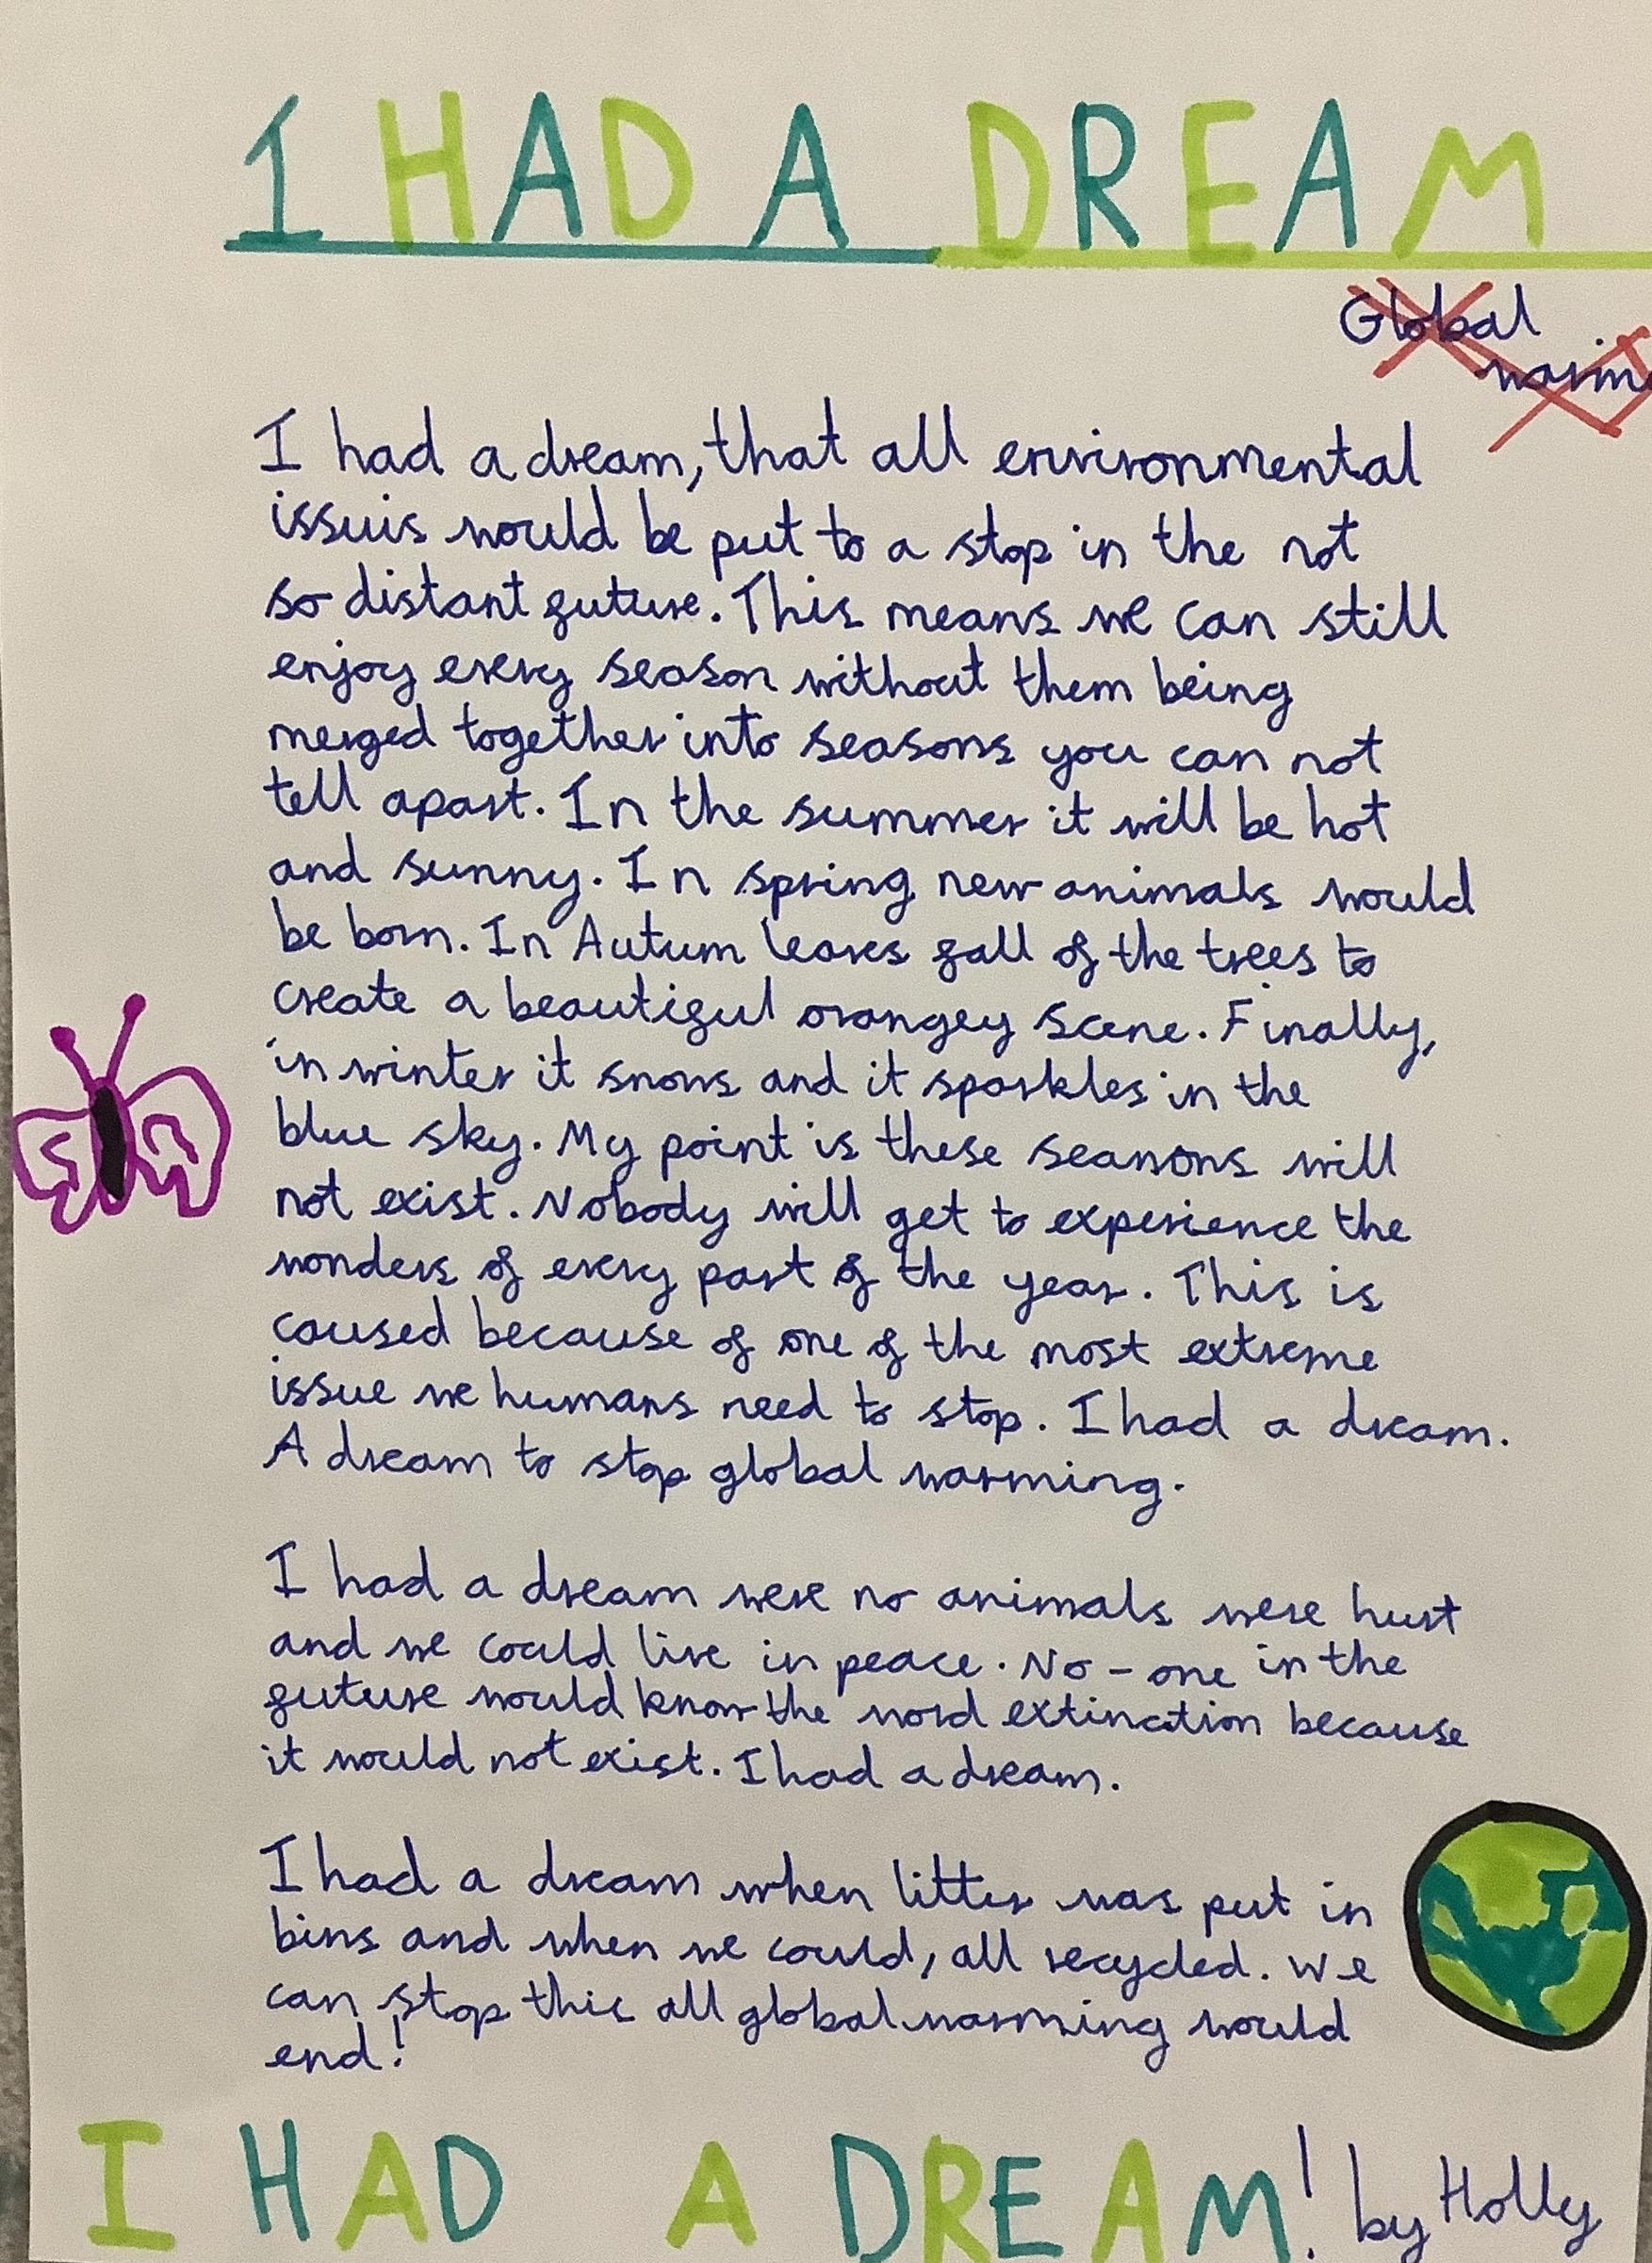 I HAD A DREAM
Global
warmin
I had a dream, that all environmental
issuis would be put to a stop in the not
so distant future. This means we can still
enjoy every season without them being
merged together into seasons you can not
tell apart. In the summer it will be hot
and sunny. In spring new animals would
be born. In Autum leaves fall of the trees to
create a beautiful orangey scene. Finally,
in winter it snows and it sparkles in the
blue sky. My point is these seansons will
not exist. Nobody will get to experience the
wonders of every part of the year. This is
caused because of one of the most extreme
issue we humans need to stop. I had a dream.
A dream to stop global warming.
I had a dream were no animals were hurt
and we could live in peace. No-one in the
future would know the word extincation because
it would not exist. I had a dream.
I had a dream when litter was put in
bins and when we could, all recycled. We
can stop this all global warming would
end!
I HAD A DREAM! by Holly